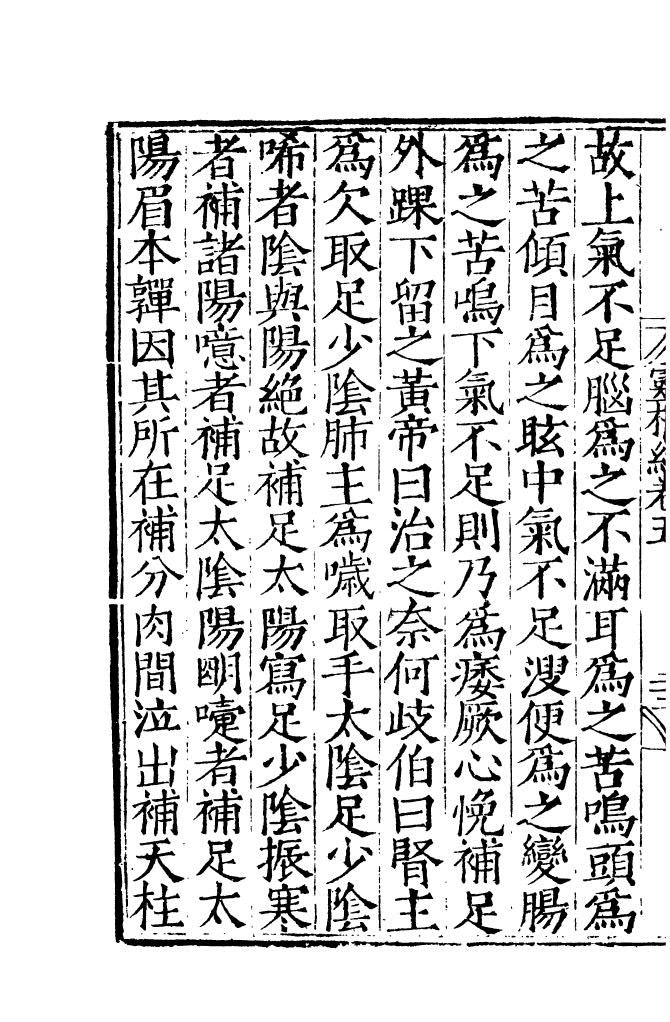 故上氣不足腦爲之不滿耳爲之苦鳴頭爲
之苦傾目爲之眩中氣不足溲便爲之變腸
爲之苦鳴下氣不足則乃爲痿厥心悗補足
外踝下留之黃帝曰治之奈何歧伯曰腎主
爲欠取足少陰肺主爲噦取手太陰足少陰
唏者陰與陽絶故補足太陽寫足少陰振寒
者補諸陽噫者補足太陰陽明嚏者補足太
陽眉本嚲因其所在補分肉間泣出補天柱
靈樞經卷五